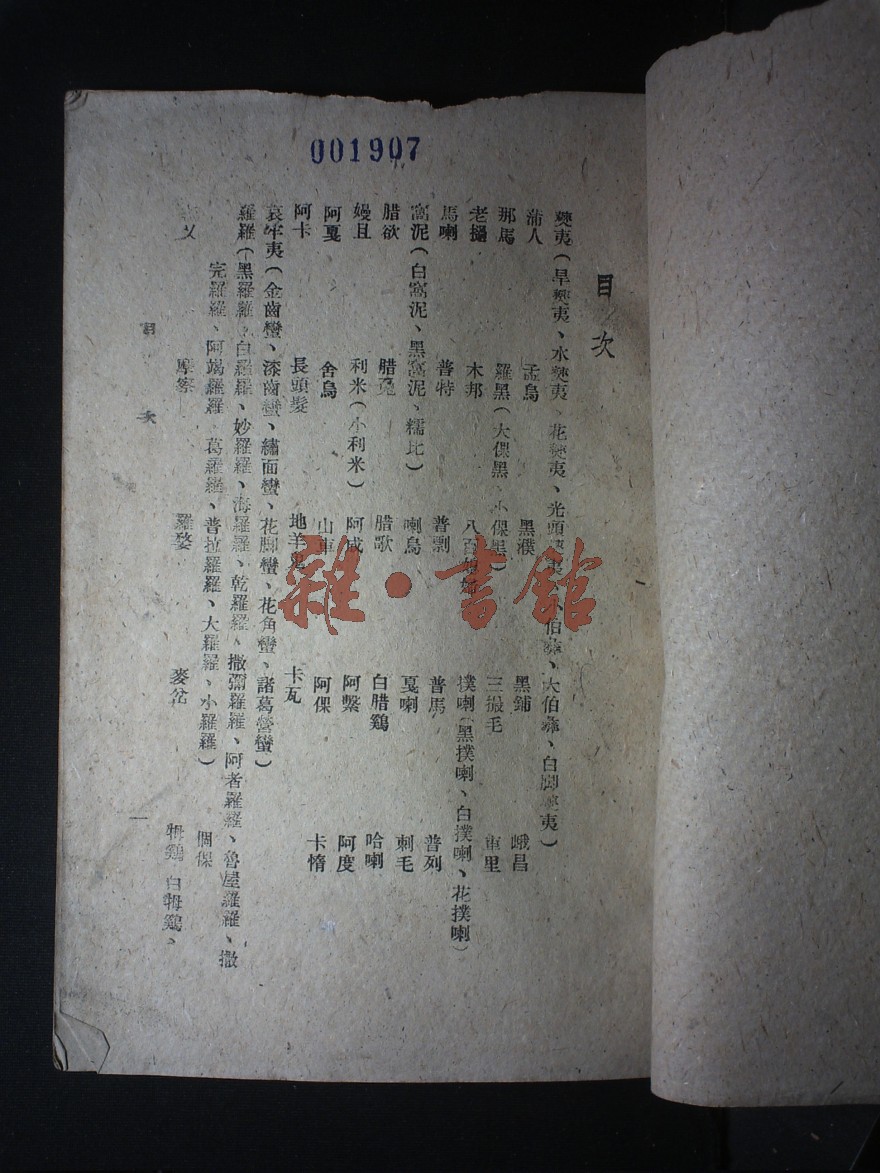 001907
目次
僰夷(旱僰夷、水僰夷、花僰夷、光頭僰夷、伯彝、大伯彝、白脚僰夷)
蒲人 孟烏 黑濮 黑鋪 峨昌
那馬 羅黑(大倮黑、小倮黑) 三撮毛 車里
老撾 木邦 八百媳婦 撲喇(黑撲喇、白撲喇、花撲喇)
馬喇 普特 普剽 普馬 普列
窩泥(白窩泥、黑窩泥、糯比) 喇烏 戛喇 刺毛
腊欲 腊兔 腊歌 白腊鷄 哈喇
嫚且 利米(小利米) 阿成 阿繫 阿度
阿戛 舍烏 山車 阿倮 卡惰
阿卡 長頭髮 地羊鬼 卡瓦
哀牢夷(金齒蠻、漆齒蠻、繡面蠻、花脚蠻、花角蠻、諸葛營蠻)
羅羅(黑羅羅、白羅羅、妙羅羅、海羅羅、乾羅羅、撒彌羅羅、阿者羅羅、魯屋羅羅、撒
完羅羅、阿竭羅羅、葛羅羅、普拉羅羅、大羅羅、小羅羅) 倜倮
摩察 羅婺 麥岔 拇鷄 白拇鷄、
目次 一
雜·書館